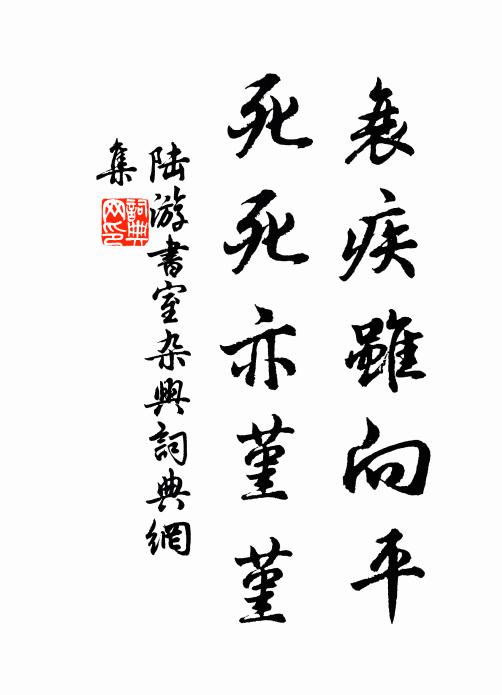 衰疾雖向平
死死亦堇堇
陆游書室杂興詞典網
集
詞典网印